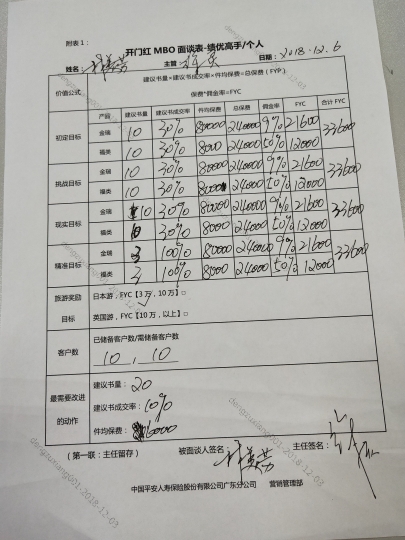 附表1：
开门红 MBO 面谈表-绩优高手/个人
姓名： 主管： 日期：2018.12.6
价值公式 建议书量×建议书成交率×件均保费=总保费（FYP）
保费*佣金率=FYC
产品 建议书量 建议书成交率 件均保费 总保费 佣金率 FYC 合计 FYC
初定目标 金瑞 10 30% 80000 240000 9% 21600 33600
福类 10 30% 8000 24000 50% 12000
挑战目标 金瑞 10 30% 80000 240000 9% 21600 33600
福类 10 30% 8000 24000 50% 12000
现实目标 金瑞 10 30% 80000 240000 9% 21600 33600
福类 10 30% 8000 24000 50% 12000
精准目标 金瑞 3 100% 80000 240000 9% 21600 33600
福类 3 100% 8000 24000 50% 12000
旅游奖励目标 日本游，FYC【3万，10万】□ ✓
英国游，FYC【10万，以上】□
客户数 已储备客户数/需储备客户数
10 ， 10
最需要改进的动作 建议书量：20
建议书成交率：10%
件均保费：
（第一联：主任留存） 被面谈人签名： 主任签名：
中国平安人寿保险股份有限公司广东分公司 营销管理部